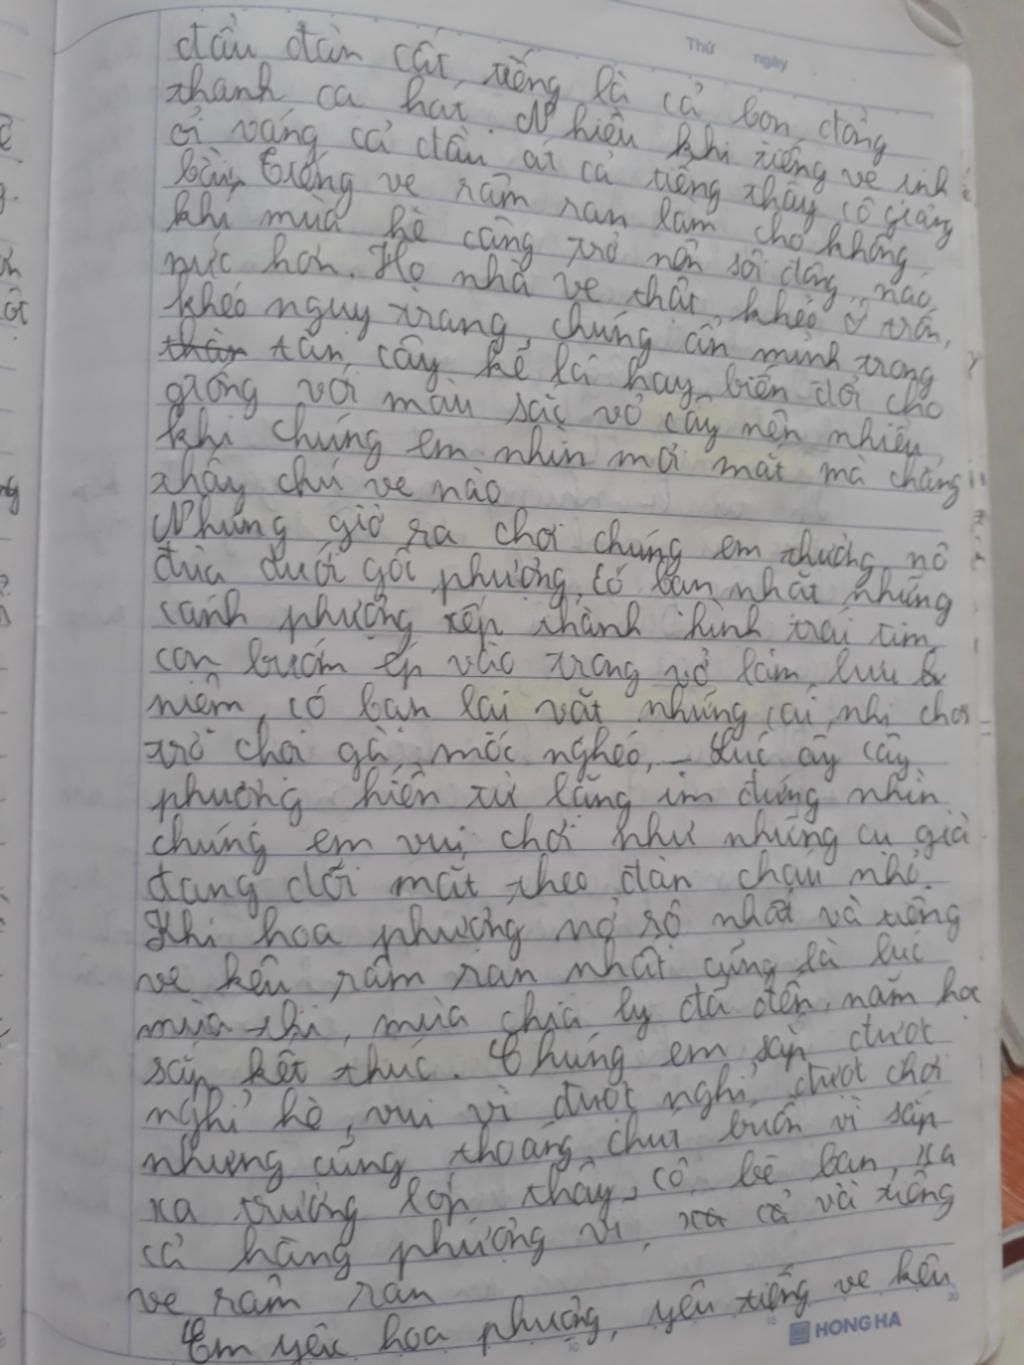 Thứ ngày
đầu đàn cất tiếng là cả bọn đồng
thanh ca hát. Nhiều khi tiếng ve inh
ỏi váng cả đầu át cả tiếng thầy cô giảng
bài, tiếng ve râm ran làm cho không
khí mùa hè càng trở nên sôi động, náo
nức hơn. Họ nhà ve thật khéo ở trốn,
khéo nguy trang, chúng ẩn mình trong
tán cây kẽ lá hay biến đổi cho
giống với màu sắc vỏ cây nên nhiều
khi chúng em nhìn mỏi mắt mà chẳng
thấy chú ve nào
Những giờ ra chơi chúng em thường nô
đùa dưới gốc phượng, có bạn nhặt những
cánh phượng xếp thành hình trái tim
con bướm ép vào trang vở làm lưu
niệm, có bạn lại vặt những cái nhị chơi
trò chơi gà móc nghéo, Lúc ấy cây
phượng hiền từ lặng im đứng nhìn
chúng em vui chơi như những cụ già
đang dõi mắt theo đàn cháu nhỏ.
Khi hoa phượng nở rộ nhất và tiếng
ve kêu râm ran nhất cũng là lúc
mùa thi, mùa chia ly đã đến, năm học
sắp kết thúc. Chúng em sắp đượt
nghỉ hè, vui vì đượt nghỉ, đượt chơi
nhưng cũng thoáng chút buồn vì sắp
xa trường lớp thầy, cô bè bạn, xa
cả hàng phượng vĩ, và tiếng
ve râm ran
Em yêu hoa phượng, yêu tiếng ve kêu
HONG HA